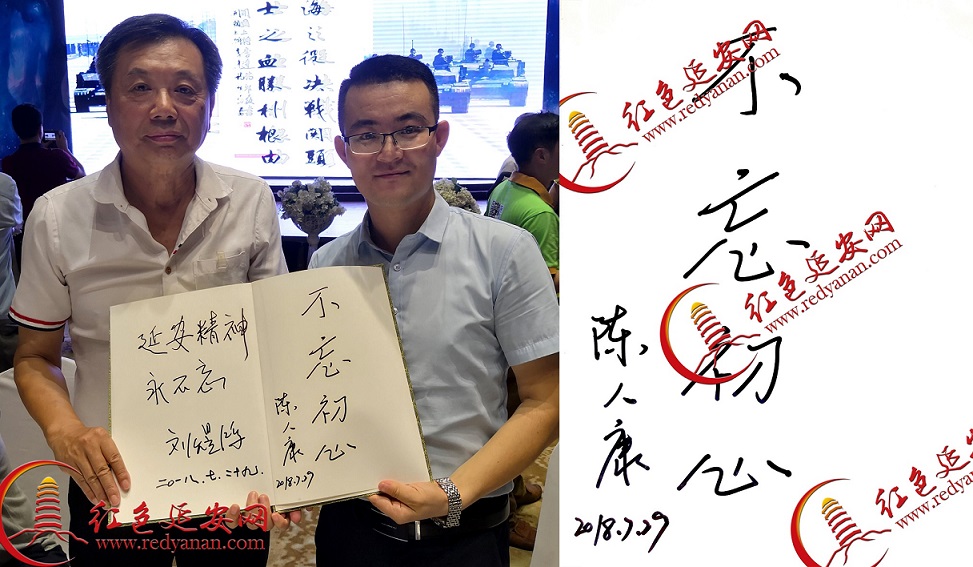 海之役决战关头
士之血胜利根由
延安精神
永不忘
二〇一八.七.二十九.
不忘初心
陈人康
2018.7.29
红色延安网
www.redyanan.com
不忘初心
陈人康
2018.7.29
红色延安网
www.redyanan.com
红色延安网
www.redyanan.com
红色延安网
www.redyanan.com